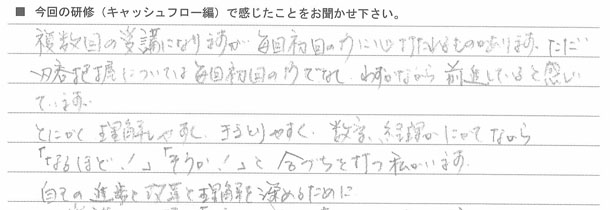 ■ 今回の研修（キャッシュフロー編）で感じたことをお聞かせ下さい。
複数回の受講になりますが毎回初回の方に心打たれるものがあります。ただ
内容把握については毎回初回の方でなく、わずかながら前進していると感じ
ています。
とにかく理解しやすく、ききとりやすく、数字、経理がにがてながら
「なるほど！」「そうか！」と合づちを打つ私がいます。
自己の進歩と改善と理解を深めるために